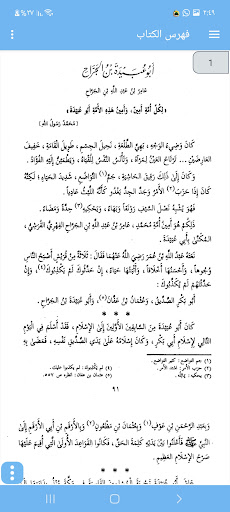 ٢:٤٩
٪٢٧
فهرس الكتاب
٦
أبو عبيدة بن الجراح
عامر بن عبد الله بن الجراح
«لكل أمة أمين، وأمين هذه الأمة أبو عبيدة»
[محمد رسول الله]
كان وضيء الوجه، بهي الطلعة، نحيل الجسم، طويل القامة، خفيف
العارضين... ترتاح العين لمرآه، وتأنس النفس للقياه، ويطمئن إليه الفؤاد.
وكان إلى ذلك رقيق الحاشية، جم(١) التواضع، شديد الحياء، لكنه
كان إذا حزب(٢) الأمر وجد الجد يغدو كأنه الليث عاديا.
فهو يشبه نصل السيف رونقا وبهاء، ويحكيه(٣) حدة ومضاء.
ذلكم هو أمين أمة محمد، عامر بن عبد الله بن الجراح الفهري القرشي،
المكنى بأبي عبيدة.
نعته عبد الله بن عمر رضي الله عنهما فقال: ثلاثة من قريش أصبح الناس
وجوها، وأحسنها أخلاقا، وأثبتها حياء، إن حدثوك لم يكذبوك، وإن
حدثتهم لم يكذبوك:
أبو بكر الصديق، وعثمان بن عفان(٥)، وأبو عبيدة بن الجراح.
كان أبو عبيدة من السابقين الأولين إلى الإسلام، فقد أسلم في اليوم
التالي لإسلام أبي بكر، وكان إسلامه على يدي الصديق نفسه، فمضى به
(١) جم التواضع: كثير التواضع.
(٢) حزب الأمر: اشتد الأمر.
(٣) يحكيه: يماثله.
٩١
وبعبد الرحمن بن عوف(١) وبعثمان بن مظعون(٢) وبالأرقم بن أبي الأرقم إلى
النبي ﷺ فأعلنوا بين يديه كلمة الحق، فكانوا القواعد الأولى التي أقيم عليها
صرح الإسلام العظيم.